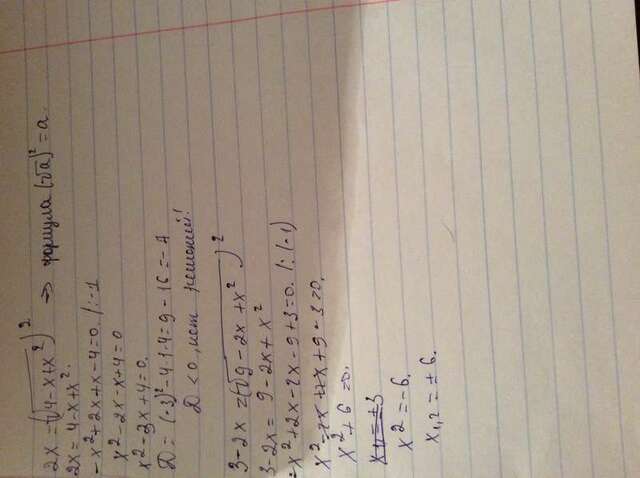 2x = (√4-x+x²)² ⇒ формула (√a)² = a.
2x = 4-x+x².
-x²+2x+x-4=0. /:-1
x²-2x-x+4=0
x²-3x+4=0.
D = (-3)²-4·1·4=9-16=-7
D<0, нет решений!
3-2x = (√9-2x+x²)²
3-2x = 9-2x+x²
-x²+2x-2x-9+3=0. /:(-1)
x²-2x+2x+9-3=0.
x²+6=0.
x²=-6.
x₁,₂=±6.